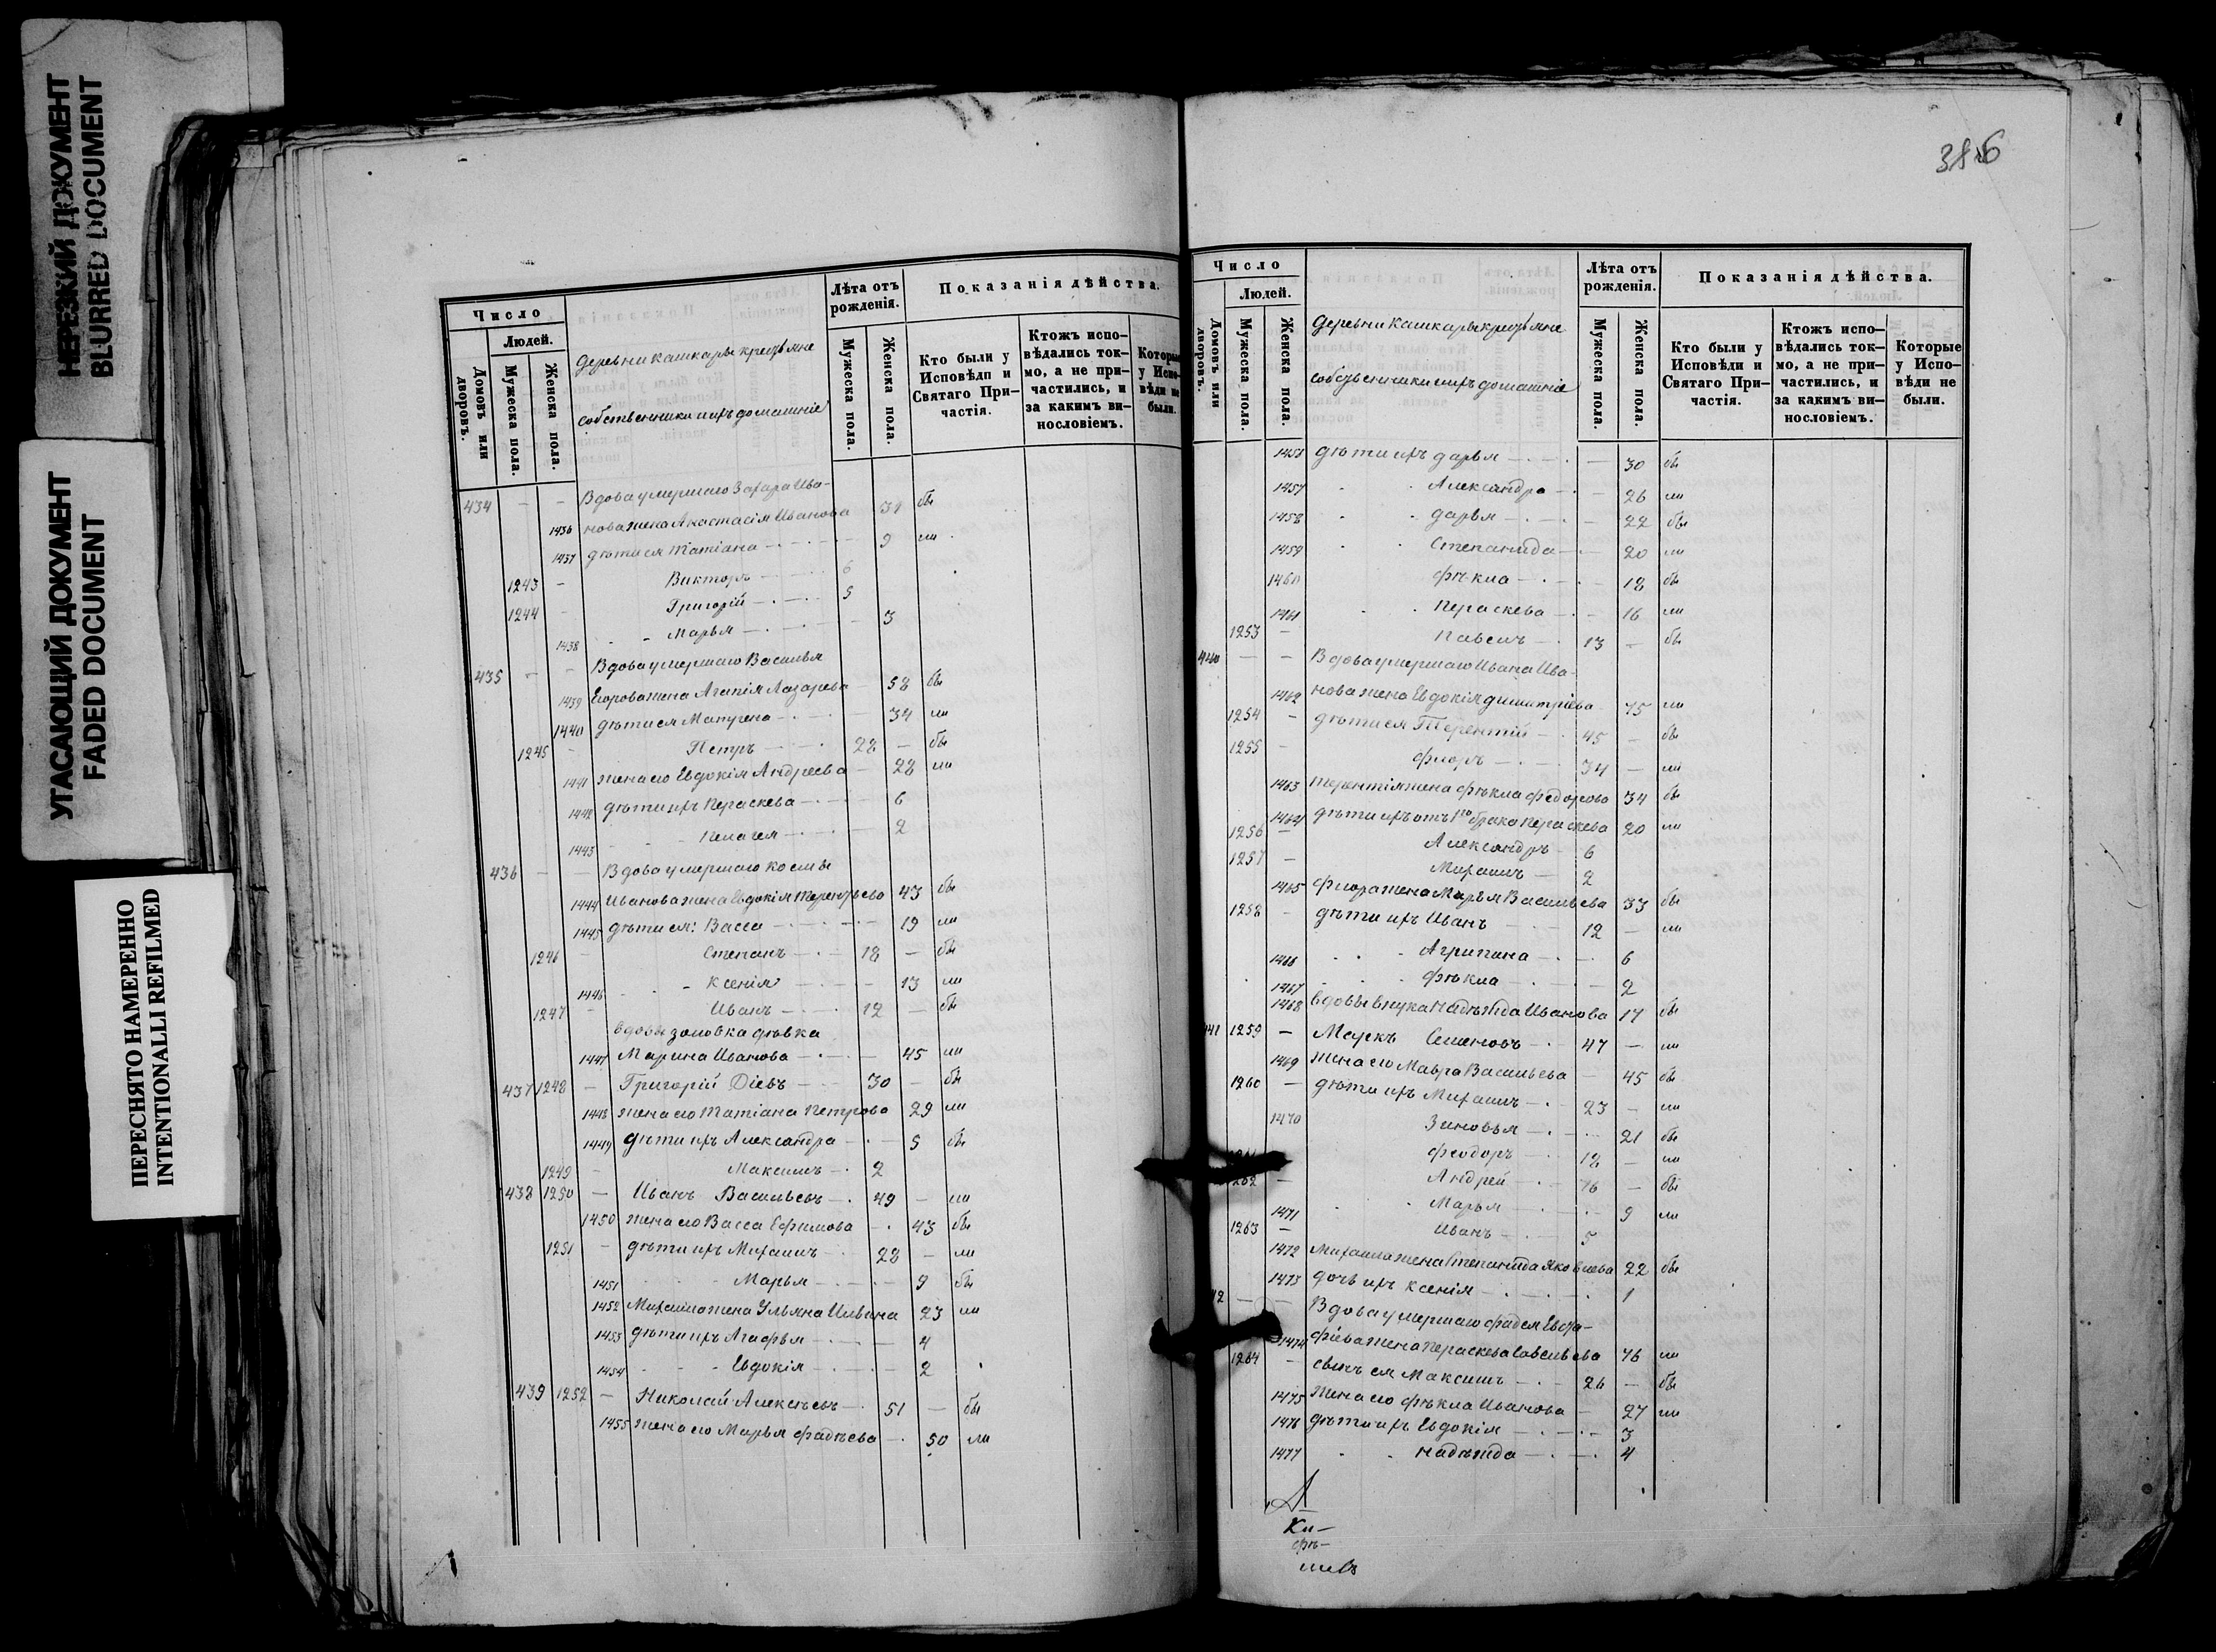 НЕРЕЗКИЙ ДОКУМЕНТ
BLURRED DOCUMENT
УГАСАЮЩИЙ ДОКУМЕНТ
FADED DOCUMENT
ПЕРЕСНЯТО НАМЕРЕННО
INTENTIONALLI REFILMED
Число
Людей.
Домовъ или дворовъ.
Мужеска пола.
Женска пола.
деревни Кашкары крестьяне
собственники и ихъ домашніе
Лѣта отъ рожденія.
Мужеска пола.
Женска пола.
Показанія дѣйства.
Кто были у Исповѣди и Святаго Причастія.
Ктожъ исповѣдались токмо, а не причастились, и за какимъ винословіемъ.
Которые у Исповѣди не были.
434 — — Вдова умершаго Захара Ива-
1436 нова жена Анастасія Иванова 31 бы
1437 дѣти ея Татіана 9 ли
1243 — Викторъ 6
1244 — Григорій 5
1438 Марья 3
435 — — Вдова умершаго Василья
1439 Егорова жена Агапія Лазарева 58 бы
1440 дѣти ея Матрена 34 ли
1245 — Петръ 28 — бы
1441 жена его Евдокія Андреева 28 ли
1442 дѣти ихъ Пераскева 6
1443 Пелагея 2
436 — — Вдова умершаго Космы
1444 Иванова жена Евдокія Терентьева 43 бы
1445 дѣти ея: Васса 19 ли
1246 — Степанъ 18 — бы
1446 Ксенія 13 ли
1247 — Иванъ 12 — бы
вдовы золовка дѣвка
1447 Марина Иванова 45 ли
437 1248 — Григорій Діевъ 30 — бы
1448 жена его Татіана Петрова 29 ли
1449 дѣти ихъ Александра 5 бы
1249 — Максимъ 2
438 1250 — Иванъ Васильевъ 49 — ли
1450 жена его Васса Ефимова 43 бы
1251 — дѣти ихъ Михаилъ 28 — ли
1451 Марья 9 бы
1452 Михаила жена Ульяна Ильина 23 ли
1453 дѣти ихъ Агафья 4
1454 Евдокія 2
439 1252 — Николай Алексѣевъ 51 — бы
1455 жена его Марья Фадѣева 50 ли
386
Число
Людей.
Домовъ или дворовъ.
Мужеска пола.
Женска пола.
деревни Кашкары крестьяне
собственники и ихъ домашніе
Лѣта отъ рожденія.
Мужеска пола.
Женска пола.
Показанія дѣйства.
Кто были у Исповѣди и Святаго Причастія.
Ктожъ исповѣдались токмо, а не причастились, и за какимъ винословіемъ.
Которые у Исповѣди не были.
дѣти ихъ дарья — 30 бы
1457 Александра — 26 ли
1458 дарья — 22 бы
1459 Степанида — 20 ли
1460 Фѣкла — 18 бы
1461 Пераскева — 16 ли
1253 — Павелъ 13 — бы
440 — — Вдова умершаго Ивана Ива-
1462 нова жена Евдокія димитріева 75 ли
1254 — дѣти ея Терентій 45 — бы
1255 — Флоръ 34 — ли
1463 Терентія жена Фѣкла Федорова 34 бы
1464 дѣти ихъ отъ 1го брака Пераскева 20 ли
1256 — Александръ 6
1257 — Михаилъ 2
1465 Флора жена Марья Васильева 33 бы
1258 — дѣти ихъ Иванъ 12 — ли
1466 Агрипина 6
1467 Фѣкла 2
1468 вдовы внука Надѣжда Иванова 17 бы
441 1259 — Маркъ Семеновъ 47 — ли
1469 жена его Мавра Васильева 45 бы
1260 — дѣти ихъ Михаилъ 23 — ли
1470 Зиновья 21 бы
Феодоръ 18 — ли
1262 — Андрей 16 — бы
1471 Марья 9 ли
1263 — Иванъ 5
1472 Михаила жена Степанида Яковлева 22 бы
1473 дочь ихъ Ксенія 1
— — Вдова умершаго Фадея Евста-
1474 фіева жена Пераскева Савельева 76 ли
1264 — сынъ ея Максимъ 26 — бы
1475 жена его Фѣкла Иванова 27 ли
1476 дѣти ихъ Евдокія 3
1477 Надѣжда 4